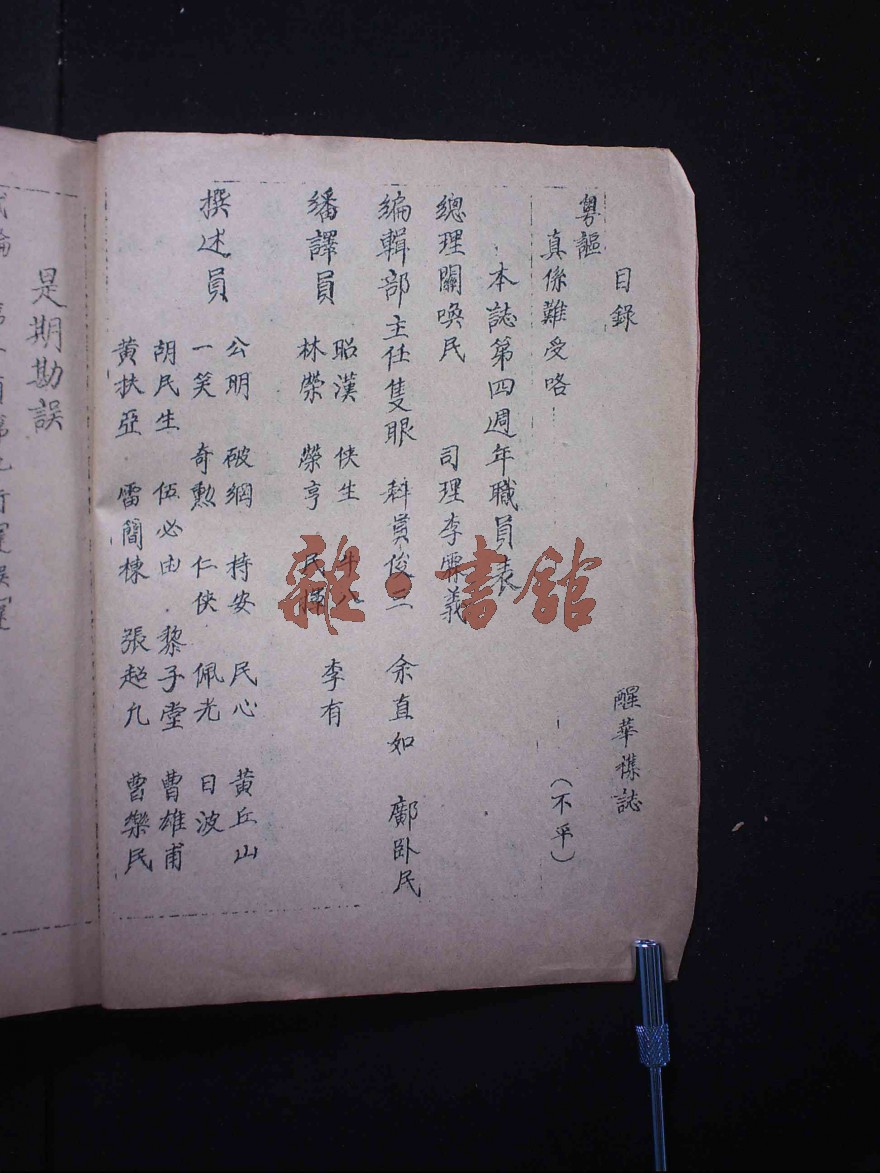 目錄 醒華襍誌
粵謳
真係難受咯 (不平)
本誌第四週年職員表
總理關喚民 司理李霈義
編輯部主任隻眼 科員俊三 余直如 鄺卧民
昭漢 俠生
繙譯員
林榮 榮亨 民 李有
公明 破網 持安 民心 黃丘山
撰述員
一笑 奇勲 仁俠 佩光 日波
胡民生 伍必由 黎子堂 曹雄甫
黃扶亞 雷簡棟 張超凡 曹樂民
是期勘誤
雜·書館